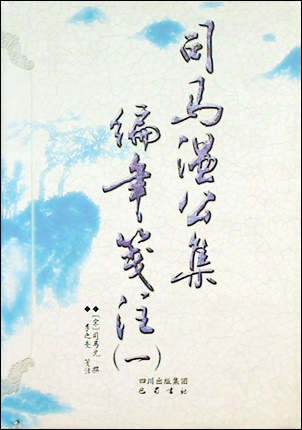 司马温公集
编年笺注
(一)
◆[宋]司马光 撰
◆李之亮 笺注
四川出版集团
巴蜀书社